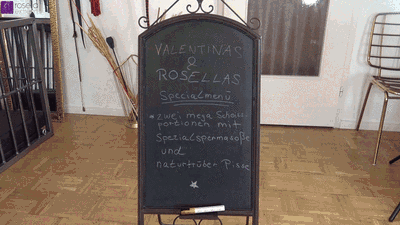 VALENTINAS
&
ROSELLAS
Specialmenü
* zwei mega Scheiss-
portionen mit
Spezialspermasoße
und
naturtrüber Pisse